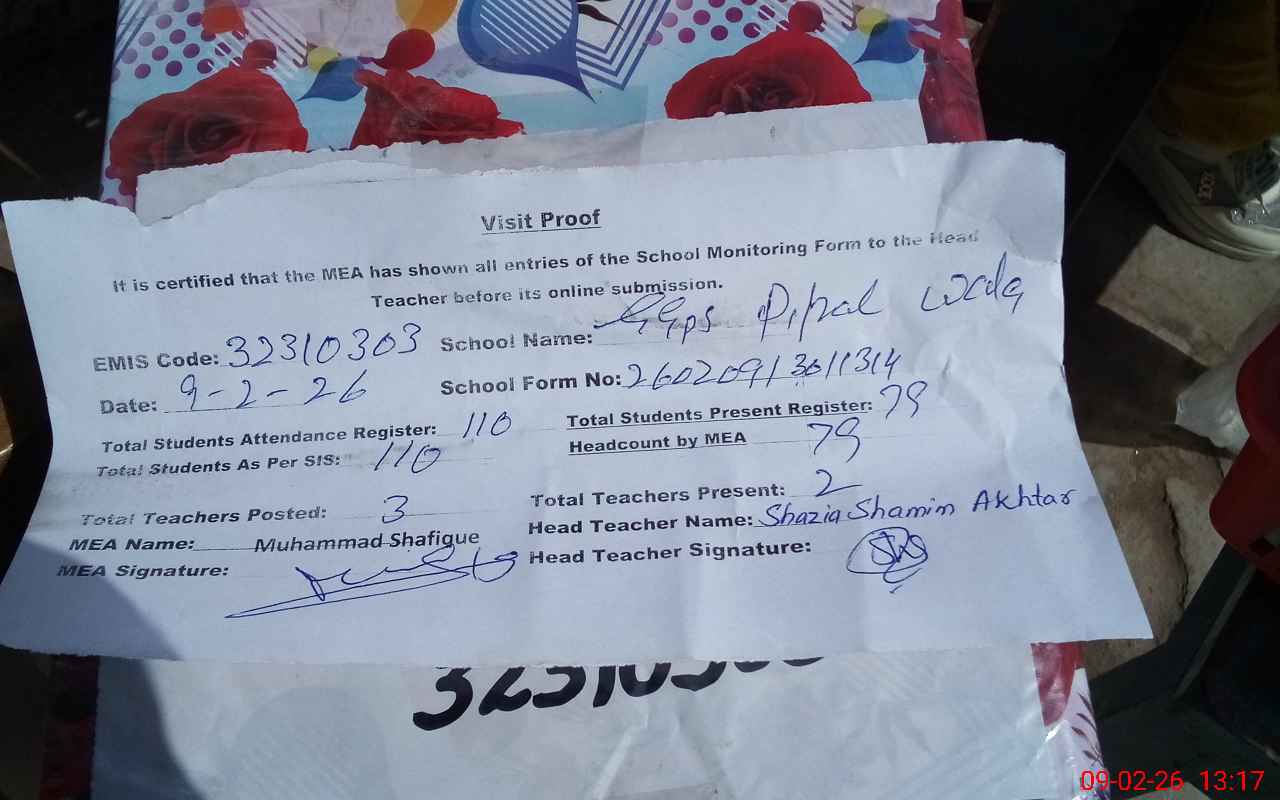 Visit Proof
It is certified that the MEA has shown all entries of the School Monitoring Form to the Head
Teacher before its online submission.
EMIS Code: 32310303 School Name: GGPS Pipal wala
Date: 9-2-26 School Form No: 26020913011314
Total Students Attendance Register: 110 Total Students Present Register: 79
Total Students As Per SIS: 110 Headcount by MEA 79
Total Teachers Posted: 3 Total Teachers Present: 2
MEA Name: Muhammad Shafique Head Teacher Name: Shazia Shamim Akhtar
MEA Signature: Head Teacher Signature:
32310303
09-02-26 13:17